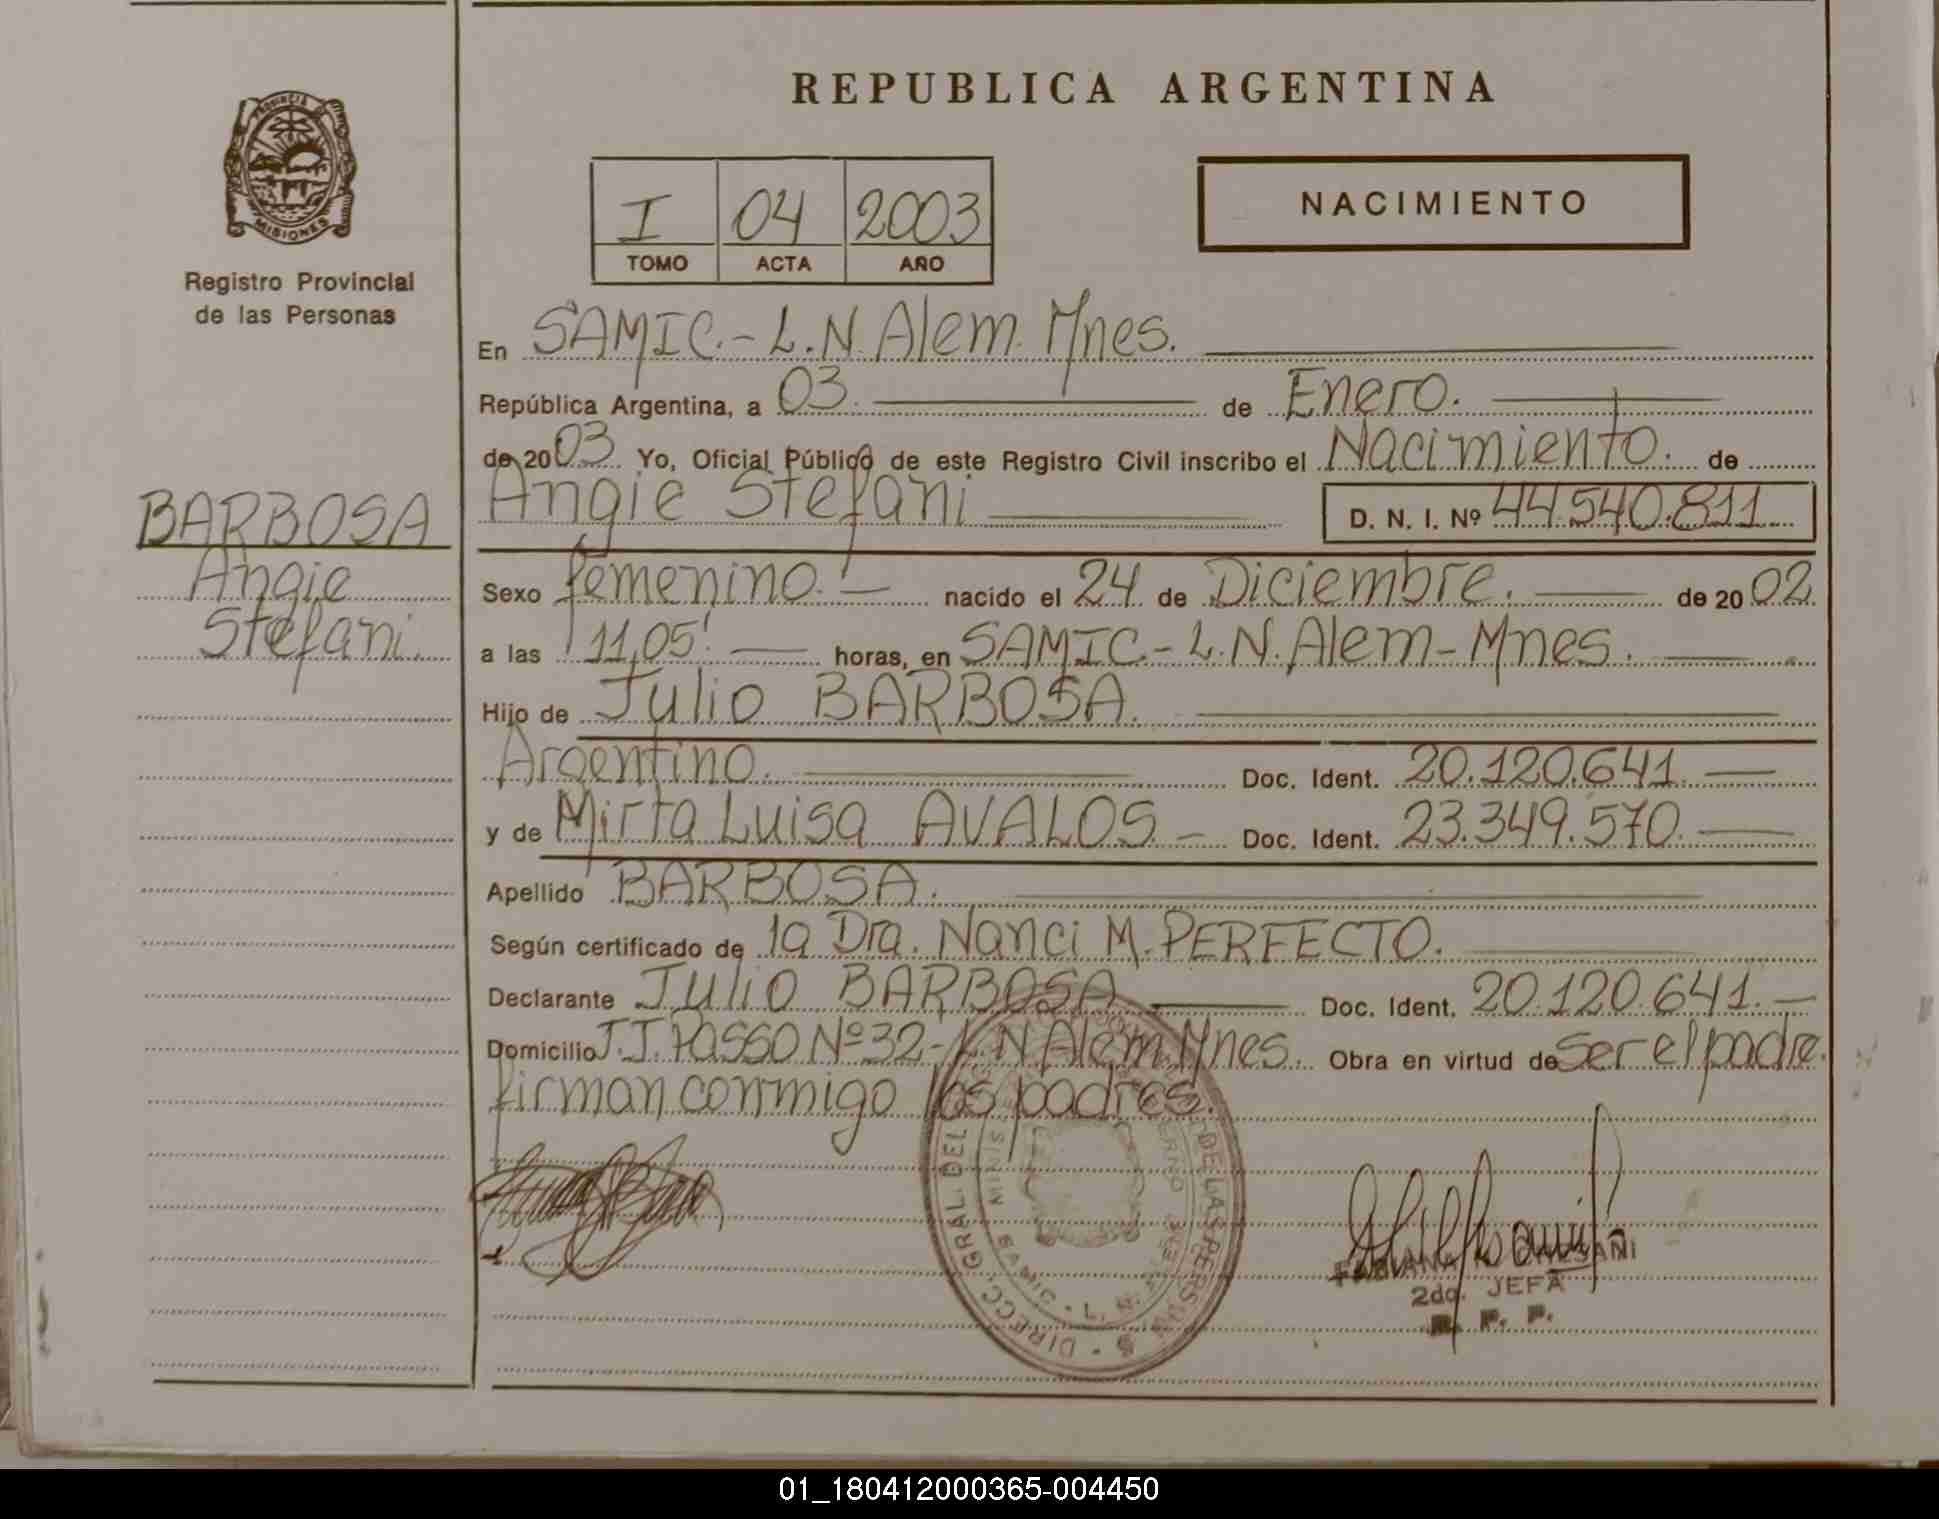 REPUBLICA ARGENTINA
PROVINCIA DE MISIONES
Registro Provincial
de las Personas
I 04 2003
TOMO ACTA AÑO
NACIMIENTO
En SAMIC.- L.N. Alem. Mnes.
República Argentina, a 03. de Enero.
de 2003 Yo, Oficial Público de este Registro Civil inscribo el Nacimiento. de
Angie Stefani D. N. I. Nº 44.540.811
BARBOSA
Angie
Stefani.
Sexo femenino.- nacido el 24 de Diciembre. de 2002
a las 11,05' horas, en SAMIC.- L.N. Alem - Mnes.
Hijo de Julio BARBOSA.
Argentino. Doc. Ident. 20.120.641.
y de Mirta Luisa AVALOS.- Doc. Ident. 23.349.570.
Apellido BARBOSA.
Según certificado de la Dra. Nanci M. PERFECTO.
Declarante Julio BARBOSA Doc. Ident. 20.120.641.-
Domicilio J.J. Passo Nº 32 - L.N Alem Mnes. Obra en virtud de Ser el padre.
firman conmigo los padres.
DIRECC. GRAL. DEL DE LAS PERS
SAMIC. - L. N. ALEM
2da. JEFA
R. P. P.
01_180412000365-004450